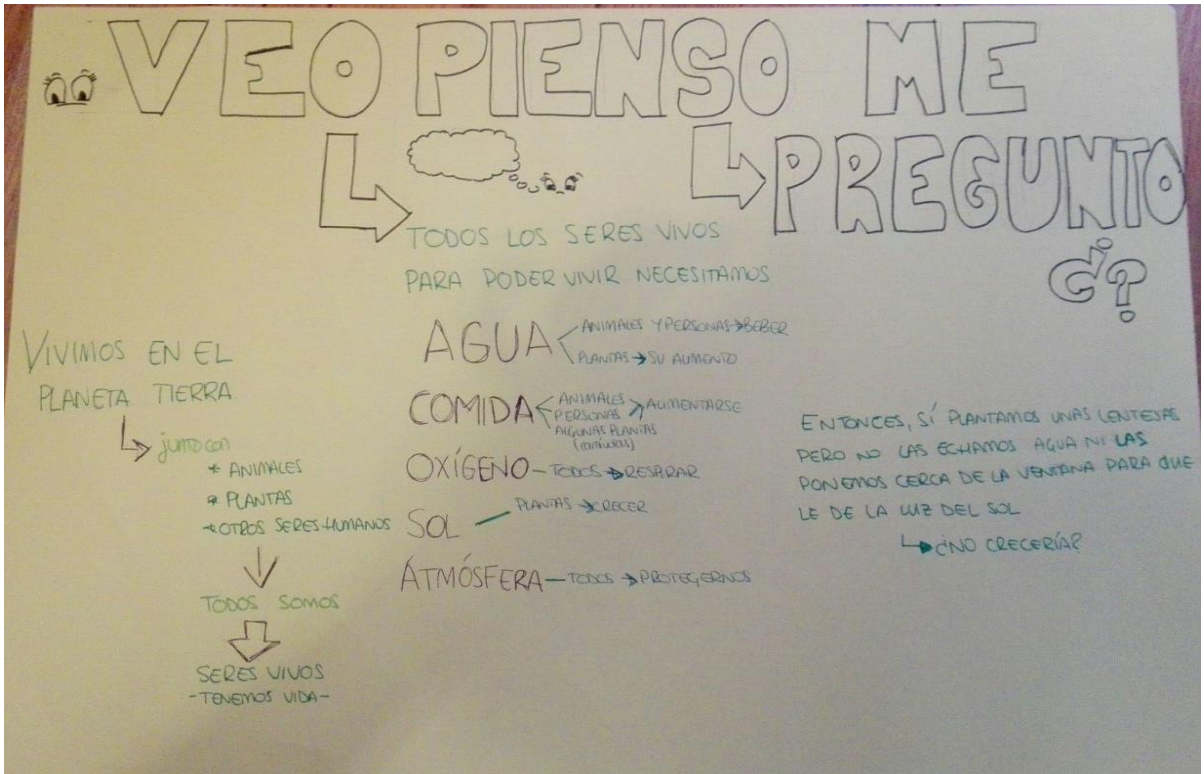 VEO PIENSO ME
PREGUNTO
¿?
VIVIMOS EN EL
PLANETA TIERRA
junto con
* ANIMALES
* PLANTAS
* OTROS SERES HUMANOS
TODOS SOMOS
SERES VIVOS
- TENEMOS VIDA -
TODOS LOS SERES VIVOS
PARA PODER VIVIR NECESITAMOS
AGUA
ANIMALES Y PERSONAS → BEBER
PLANTAS → SU ALIMENTO
COMIDA
ANIMALES
PERSONAS
ALIMENTARSE
ALGUNAS PLANTAS
OXÍGENO - TODOS → RESPIRAR
SOL
PLANTAS → CRECER
ATMÓSFERA - TODOS → PROTEGERNOS
ENTONCES, SÍ PLANTAMOS UNAS LENTEJAS
PERO NO LAS ECHAMOS AGUA NI LAS
PONEMOS CERCA DE LA VENTANA PARA QUE
LE DE LA LUZ DEL SOL
¿NO CRECERÍA?